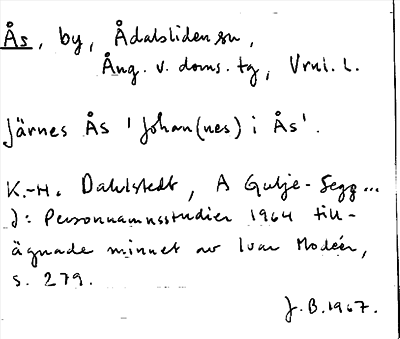 Ås, by, Ådalsliden sn,
Ång. v. doms. tg, Vrnl. l.
Järnes Ås 'Johan(nes) i Ås'.
K.-H. Dahlstedt, A Gulje-Segg...
J: Personnamnsstudier 1964 till-
ägnade minnet av Ivar Modéer,
s. 279.
J.B. 1967.